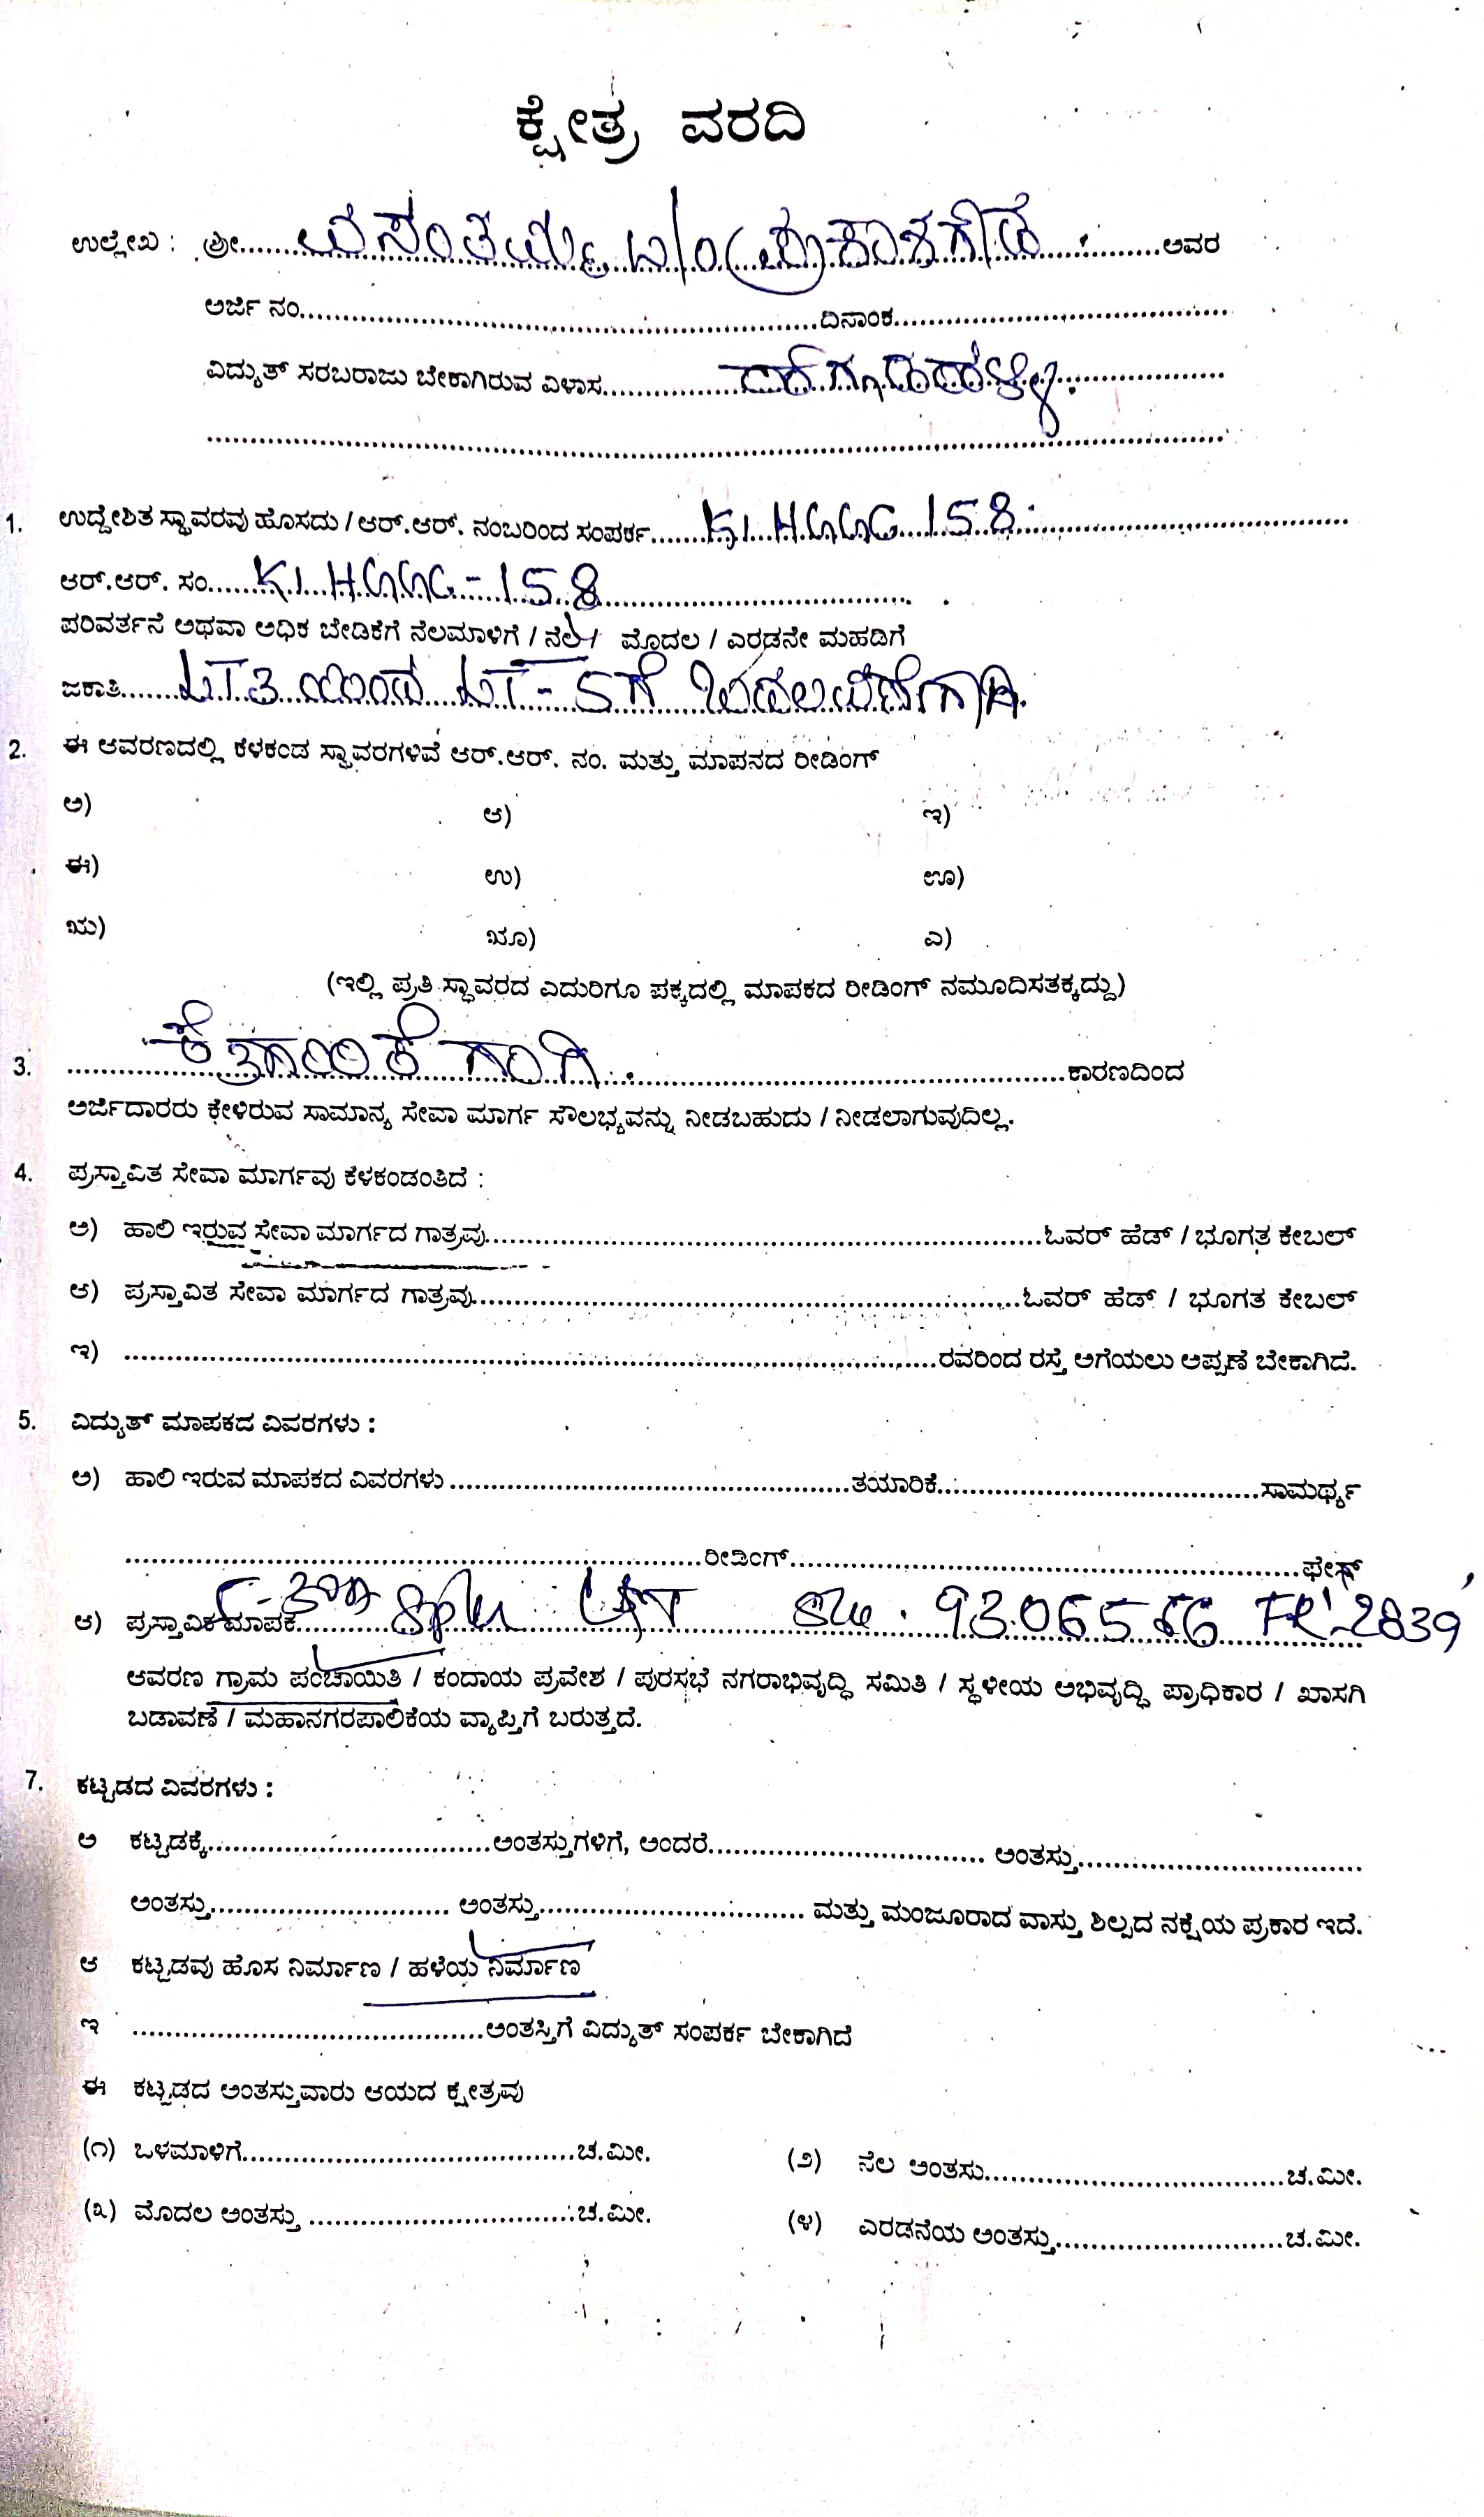 ಕ್ಷೇತ್ರ ವರದಿ
ಉಲ್ಲೇಖ : ಶ್ರೀ......ವಸಂತಯ್ಯ ಬಿ/ಂ ಪ್ರಕಾಶಗೌಡ..........ಅವರ
ಅರ್ಜಿ ನಂ..........ದಿನಾಂಕ..........
ವಿದ್ಯುತ್ ಸರಬರಾಜು ಬೇಕಾಗಿರುವ ವಿಳಾಸ..........
1. ಉದ್ದೇಶಿತ ಸ್ಥಾವರವು ಹೊಸದು / ಆರ್.ಆರ್. ನಂಬರಿಂದ ಸಂಪರ್ಕ.......KLHGGG 158..........
ಆರ್.ಆರ್. ಸಂ......KLHGGG-158..........
ಪರಿವರ್ತನೆ ಅಥವಾ ಅಧಿಕ ಬೇಡಿಕೆಗೆ ನೆಲಮಾಳಿಗೆ / ನೆಲ / ಮೊದಲ / ಎರಡನೇ ಮಹಡಿಗೆ
ಜಕಾತಿ.......LT3 ಯಿಂದ LT-5ಗೆ ಬದಲಾವಣೆಗಾಗಿ.
2. ಈ ಆವರಣದಲ್ಲಿ ಕೆಳಕಂಡ ಸ್ಥಾವರಗಳಿವೆ ಆರ್.ಆರ್. ನಂ. ಮತ್ತು ಮಾಪನದ ರೀಡಿಂಗ್
ಅ) ಆ) ಇ)
ಈ) ಉ) ಊ)
ಋ) ೠ) ಎ)
(ಇಲ್ಲಿ ಪ್ರತಿ ಸ್ಥಾವರದ ಎದುರಿಗೂ ಪಕ್ಕದಲ್ಲಿ ಮಾಪಕದ ರೀಡಿಂಗ್ ನಮೂದಿಸತಕ್ಕದ್ದು)
3. ..........ಕಾರಣದಿಂದ
ಅರ್ಜಿದಾರರು ಕೇಳಿರುವ ಸಾಮಾನ್ಯ ಸೇವಾ ಮಾರ್ಗ ಸೌಲಭ್ಯವನ್ನು ನೀಡಬಹುದು / ನೀಡಲಾಗುವುದಿಲ್ಲ.
4. ಪ್ರಸ್ತಾವಿತ ಸೇವಾ ಮಾರ್ಗವು ಕೆಳಕಂಡಂತಿದೆ :
ಅ) ಹಾಲಿ ಇರುವ ಸೇವಾ ಮಾರ್ಗದ ಗಾತ್ರವು..........ಓವರ್ ಹೆಡ್ / ಭೂಗತ ಕೇಬಲ್
ಆ) ಪ್ರಸ್ತಾವಿತ ಸೇವಾ ಮಾರ್ಗದ ಗಾತ್ರವು..........ಓವರ್ ಹೆಡ್ / ಭೂಗತ ಕೇಬಲ್
ಇ) ..........ರವರಿಂದ ರಸ್ತೆ ಅಗೆಯಲು ಅಪ್ಪಣೆ ಬೇಕಾಗಿದೆ.
5. ವಿದ್ಯುತ್ ಮಾಪಕದ ವಿವರಗಳು :
ಅ) ಹಾಲಿ ಇರುವ ಮಾಪಕದ ವಿವರಗಳು..........ತಯಾರಿಕೆ..........ಸಾಮರ್ಥ್ಯ
..........ರೀಡಿಂಗ್..........ಫೇಸ್
ಆ) ಪ್ರಸ್ತಾವಿಕ ಮಾಪಕ....5-30A L&T 9306566 FR-2839
ಆವರಣ ಗ್ರಾಮ ಪಂಚಾಯಿತಿ / ಕಂದಾಯ ಪ್ರವೇಶ / ಪುರಸಭೆ ನಗರಾಭಿವೃದ್ಧಿ ಸಮಿತಿ / ಸ್ಥಳೀಯ ಅಭಿವೃದ್ಧಿ ಪ್ರಾಧಿಕಾರ / ಖಾಸಗಿ
ಬಡಾವಣೆ / ಮಹಾನಗರಪಾಲಿಕೆಯ ವ್ಯಾಪ್ತಿಗೆ ಬರುತ್ತದೆ.
7. ಕಟ್ಟಡದ ವಿವರಗಳು :
ಅ ಕಟ್ಟಡಕ್ಕೆ..........ಅಂತಸ್ತುಗಳಿಗೆ, ಅಂದರೆ.......... ಅಂತಸ್ತು..........
ಅಂತಸ್ತು.......... ಅಂತಸ್ತು.......... ಮತ್ತು ಮಂಜೂರಾದ ವಾಸ್ತು ಶಿಲ್ಪದ ನಕ್ಷೆಯ ಪ್ರಕಾರ ಇದೆ.
ಆ ಕಟ್ಟಡವು ಹೊಸ ನಿರ್ಮಾಣ / ಹಳೆಯ ನಿರ್ಮಾಣ
ಇ ..........ಅಂತಸ್ತಿಗೆ ವಿದ್ಯುತ್ ಸಂಪರ್ಕ ಬೇಕಾಗಿದೆ
ಈ ಕಟ್ಟಡದ ಅಂತಸ್ತುವಾರು ಆಯದ ಕ್ಷೇತ್ರವು
(೧) ಒಳಮಾಳಿಗೆ..........ಚ.ಮೀ. (೨) ನೆಲ ಅಂತಸು..........ಚ.ಮೀ.
(೩) ಮೊದಲ ಅಂತಸ್ತು ..........ಚ.ಮೀ. (೪) ಎರಡನೆಯ ಅಂತಸ್ತು..........ಚ.ಮೀ.